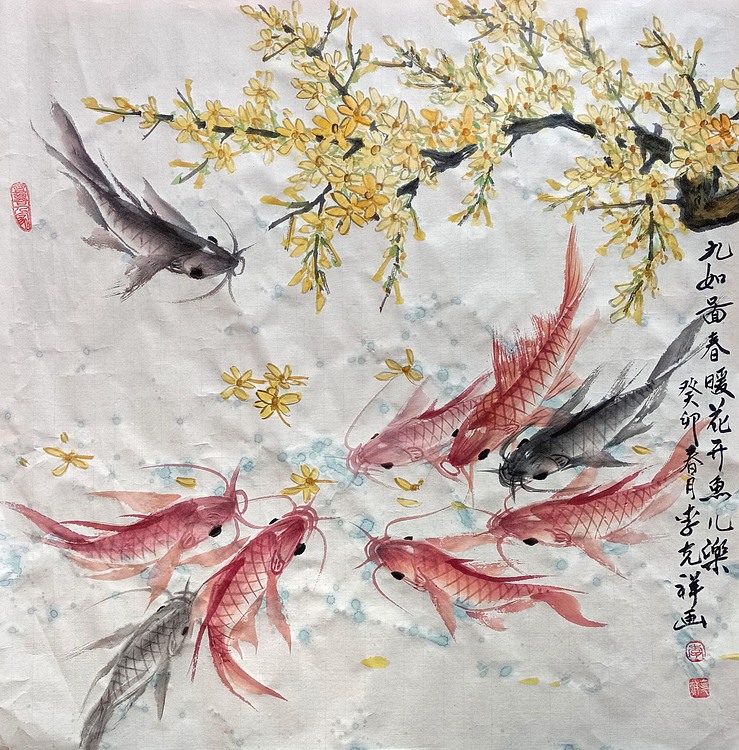 九如图春暖花开鱼儿樂
癸卯春月李克祥画